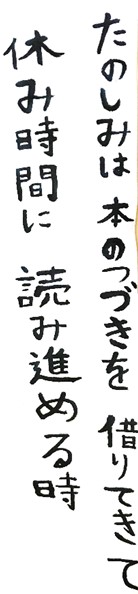 たのしみは 本のつづきを 借りてきて
休み時間に 読み進める時